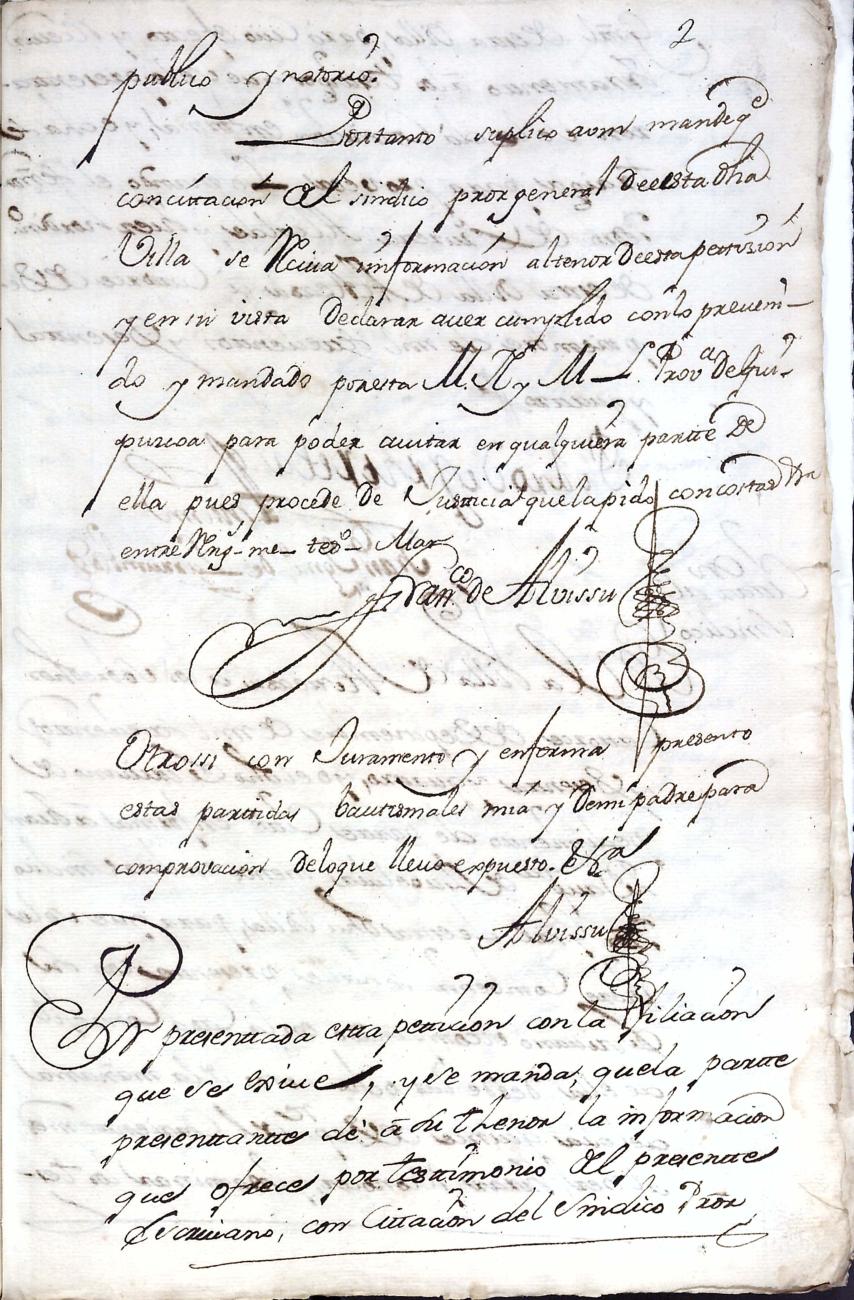 2
publico y notorio.
Portanto suplico avm mande q̃
con citacion al sindico pror general de esta dha
Villa se Reciva informacion al tenor de esta peticion
y en su vista declarar aver cumplido con lo preveni-
do y mandado por esta M. N. y M. L. Prov.a de Gui-
puzcoa para poder avitar en qualquiera partte de
ella pues procede de Justicia que la pido con costas
entre Rng.s - me - tedo -
Fran.co de Alvissu
Otrossi con Juramento y en forma presento
estas parttidas bautismales mia y de mi padre para
comprovacion de lo que llevo expuesto. &a
Alvissu
Por presenttada estta peticion con la filiacion
que se Exive, y se manda, que la partte
presenttantte dé a su thenor la informacion
que ofrece por testimonio del presentte
Escrivano, con Cittacion del Sindico Pror